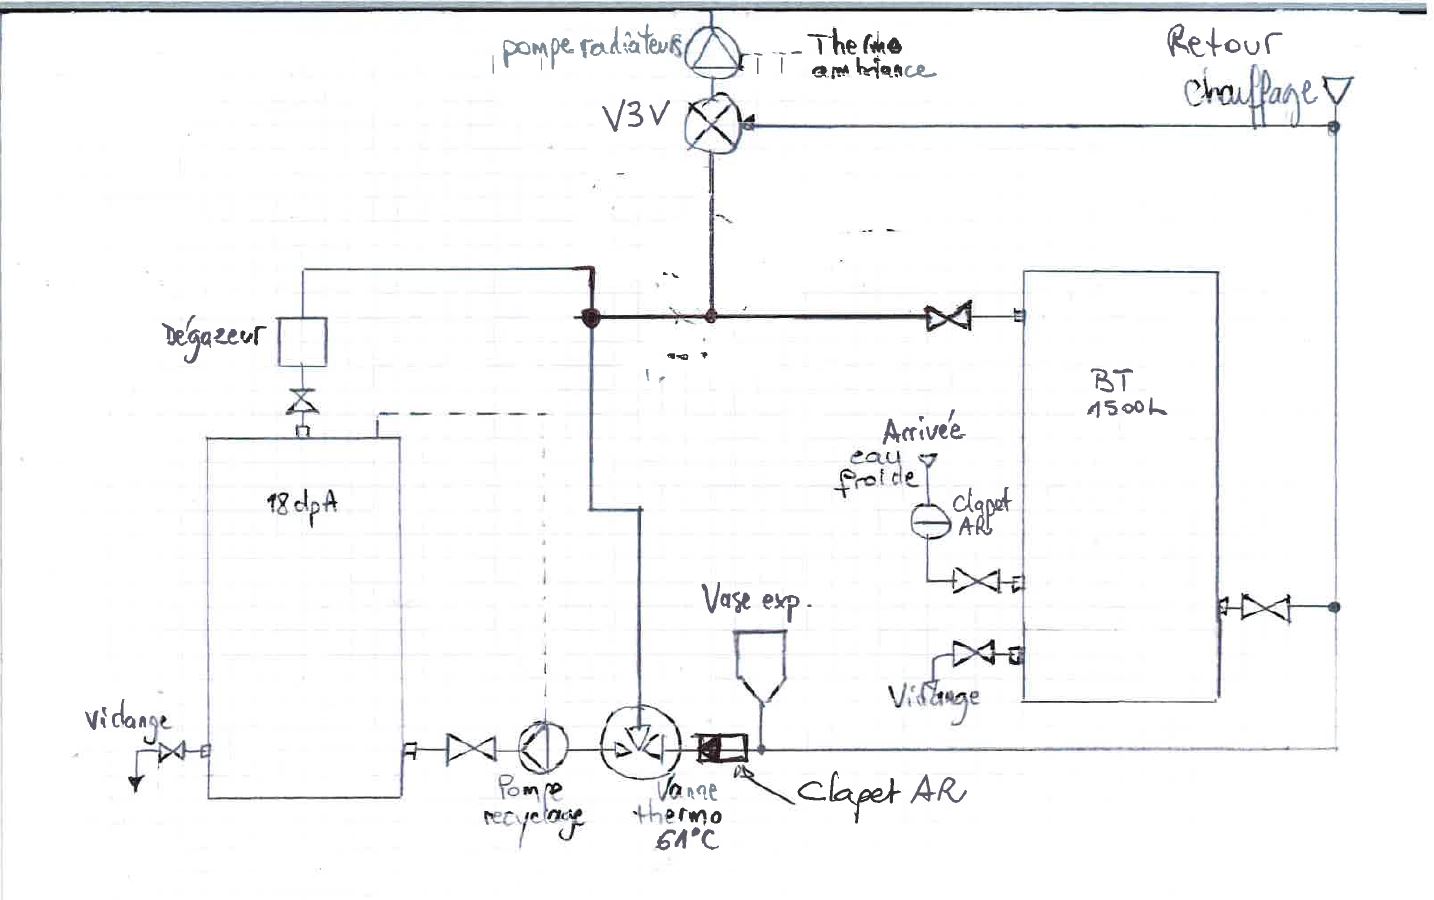 pompe radiateurs
Thermo
ambiance
Retour
chauffage
V3V
Dégazeur
BT
1500L
Arrivée
eau
froide
Clapet
AR
18dpA
Vase exp.
Vidange
Vidange
Pompe
recyclage
Vanne
thermo
61°C
Clapet AR